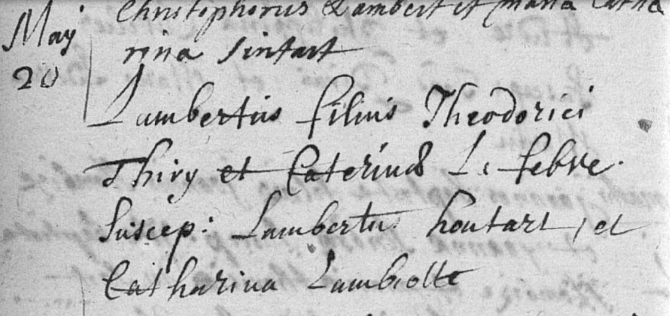 Christophorus Lambert et maria Catha
rina Sintart
May
20
Lambertus filius Theodorici
Thiry et Caterinae Le febvre.
Suscep: Lambertu houtart, et
Catharina Lambiotte